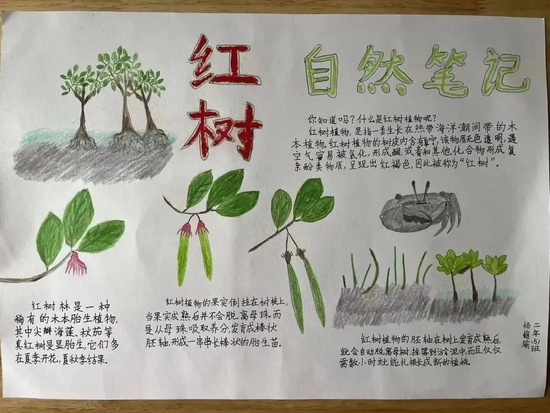 红树
自然笔记
你知道吗？什么是红树植物呢？
红树植物，是指一类生长在热带海洋潮间带的木
本植物，红树植物的树皮内含有单宁，该物质无色透明，遇
空气容易被氧化，形成醌或者和其他化合物形成复
杂酚类物质，呈现出红褐色，因此被称为“红树”。
红树林是一种
稀有的木本胎生植物，
其中尖瓣海莲、秋茄等
真红树是显胎生，它们多
在夏季开花，夏秋季结果。
红树植物的果实倒挂在树枝上，
当果实成熟后并不会脱离母株，而
是从母株吸取养分发育成棒状
胚轴，形成一串串长棒状的胎生苗。
红树植物的胚轴在树上发育成熟后，
就会自动脱离母树，掉落到淤泥中，而且仅仅
需数小时就能扎根长成新的植株。
二年
班
杨
瑜